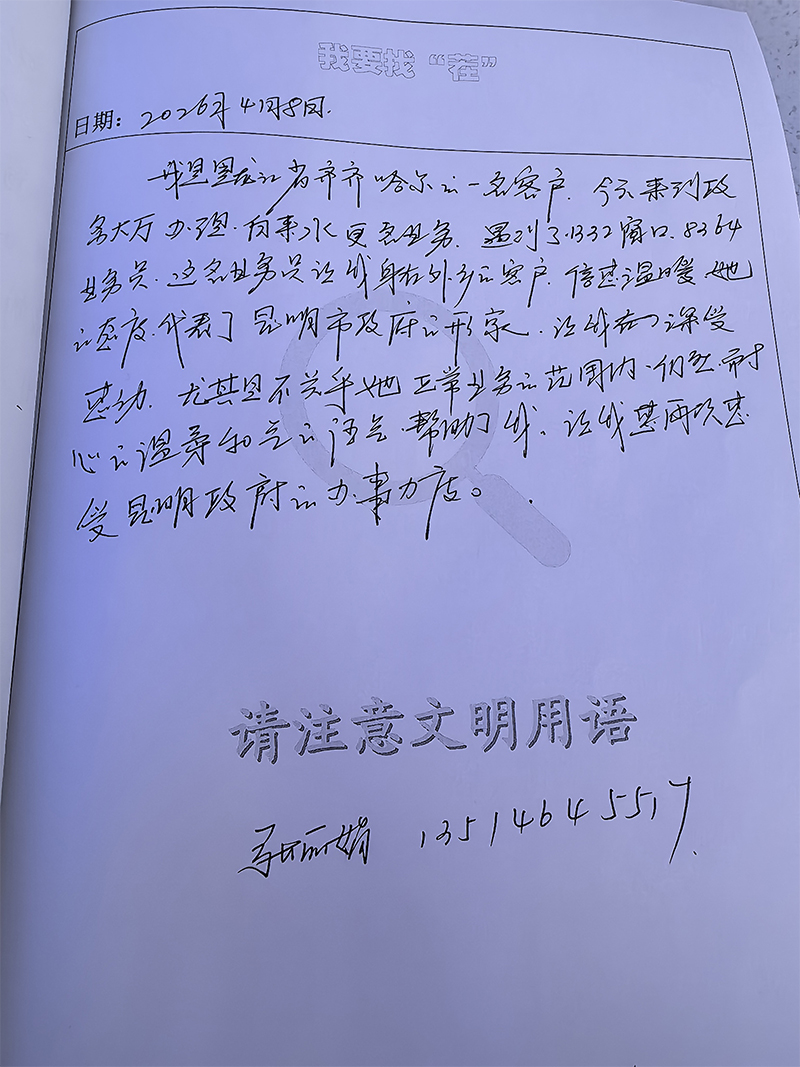 我要找“茬”
日期：2026年4月8日.
我是黑龙江省齐齐哈尔的一名客户.今天来到政
务大厅办理.自来水更名业务.遇到了.1332窗口.8364
业务员.这名业务员让我身在外乡的客户.倍感温暖.她
的态度.代表了昆明市政府的形象.让我深受
感动.尤其是不关乎她正常业务的范围内.仍然耐
心的温柔和气的语气.帮助了我.让我感
受昆明政府的办事力度。.
请注意文明用语
丽娟 13514645517.